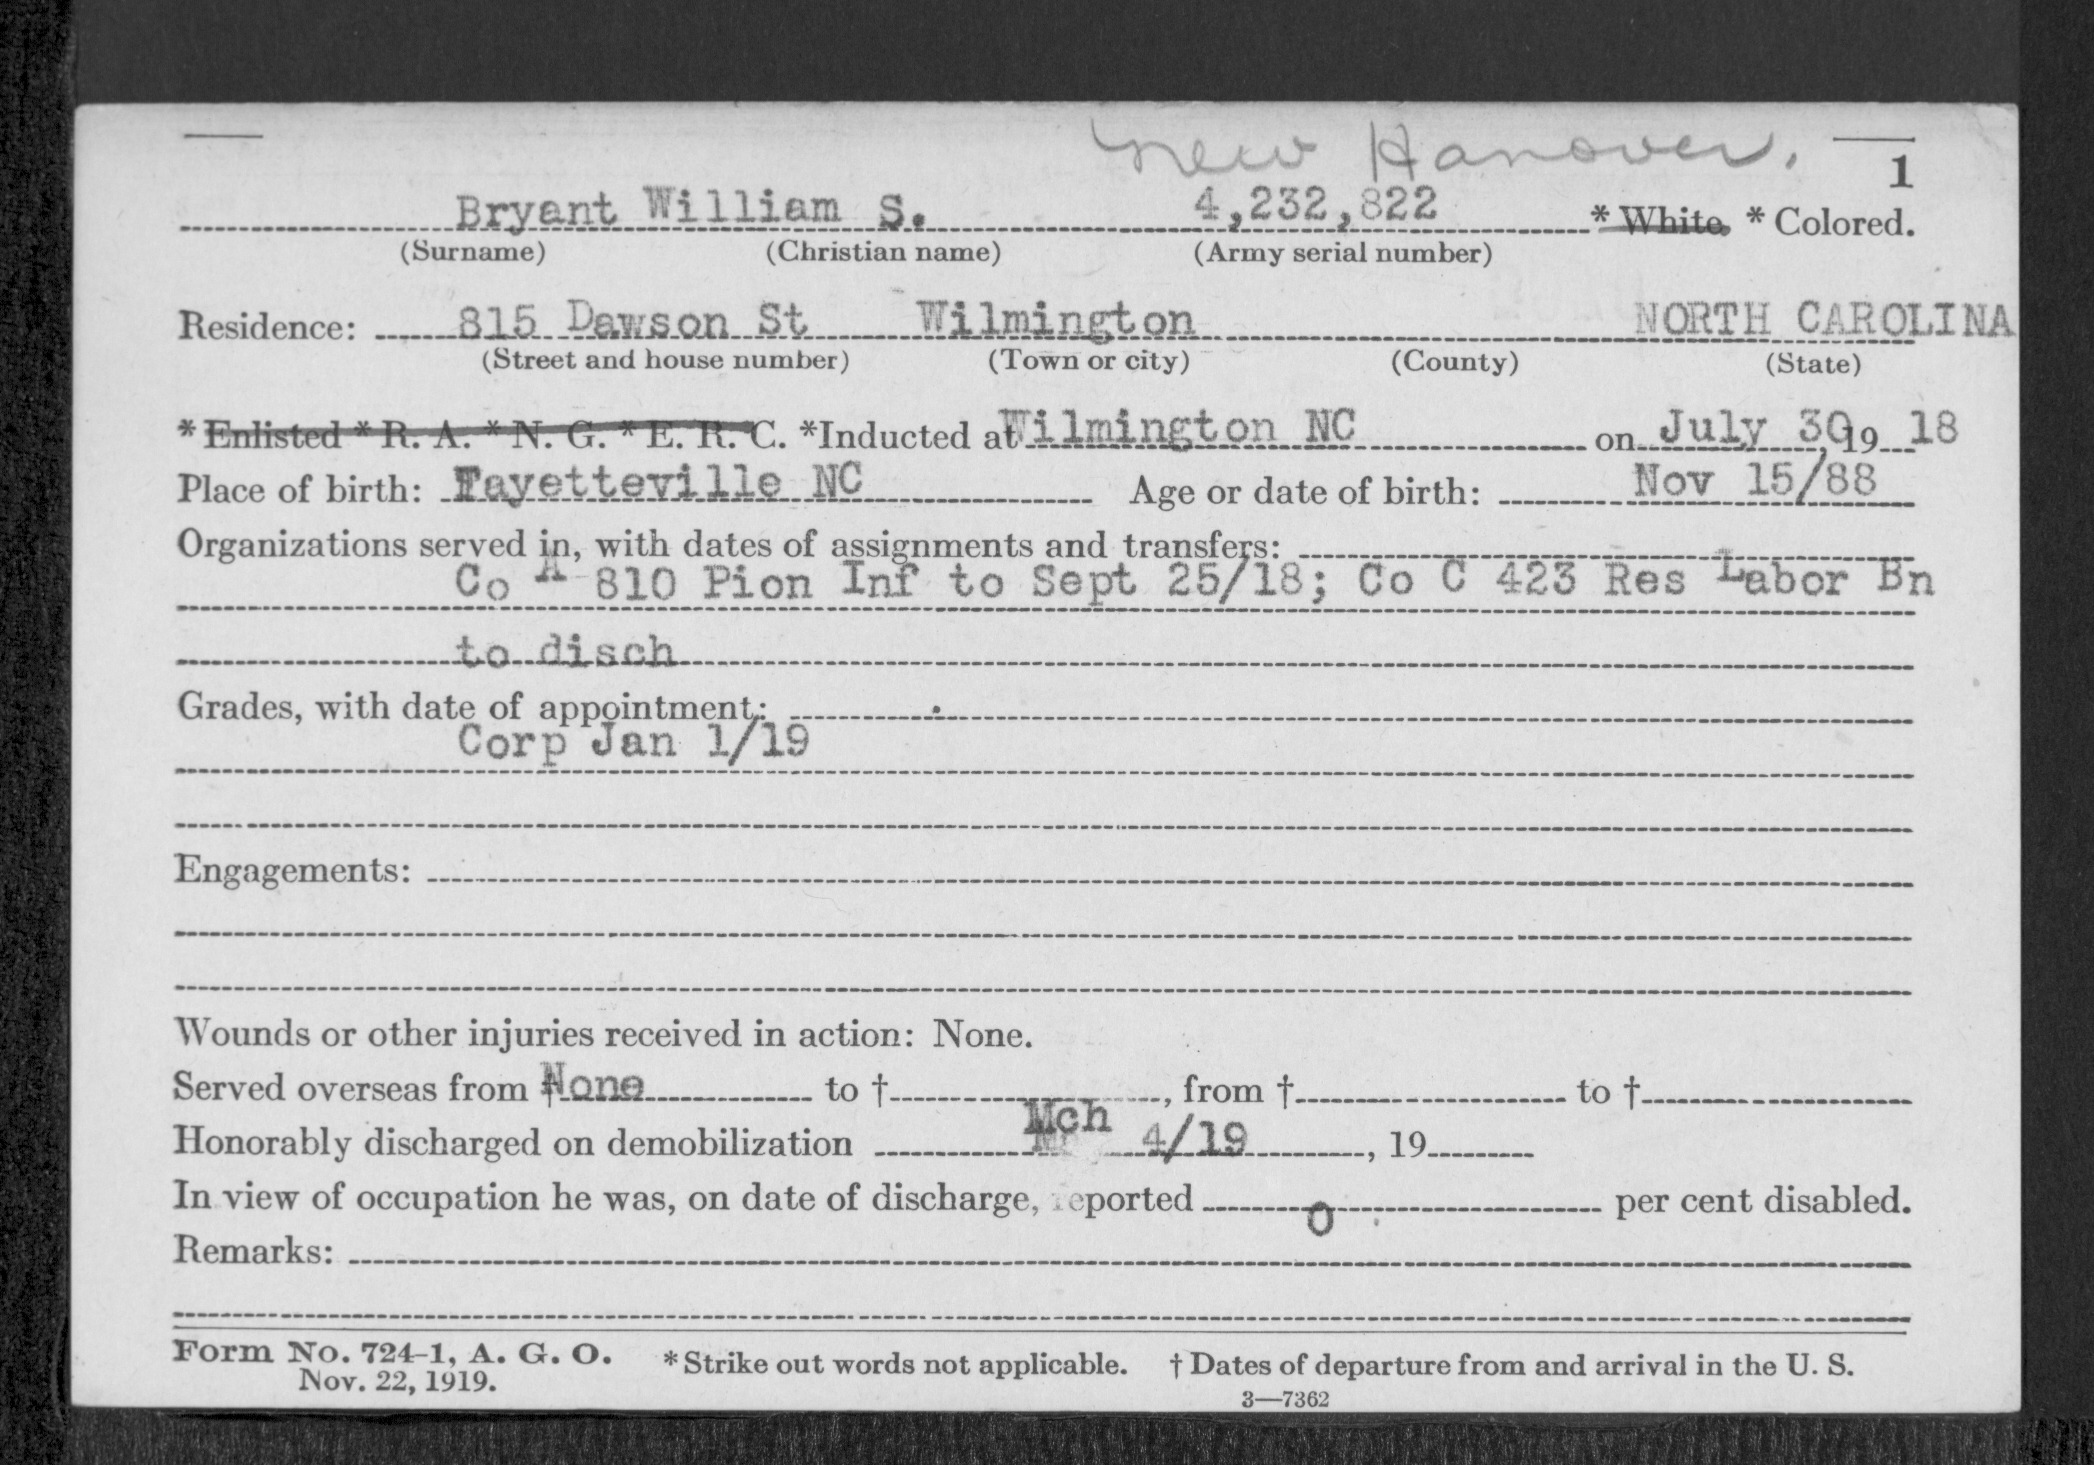 New Hanover.
1
Bryant William S. 4,232,822 * White, * Colored.
(Surname) (Christian name) (Army serial number)
Residence: 815 Dawson St Wilmington NORTH CAROLINA
(Street and house number) (Town or city) (County) (State)
* Enlisted * R. A. * N. G. * E. R. C. *Inducted at Wilmington NC on July 30, 19 18
Place of birth: Fayetteville NC Age or date of birth: Nov 15/88
Organizations served in, with dates of assignments and transfers:
Co A 810 Pion Inf to Sept 25/18; Co C 423 Res Labor Bn
to disch
Grades, with date of appointment:
Corp Jan 1/19
Engagements:
Wounds or other injuries received in action: None.
Served overseas from † None to †, from † to †
Honorably discharged on demobilization Mch 4/19, 19
In view of occupation he was, on date of discharge, reported 0 per cent disabled.
Remarks:
Form No. 724-1, A. G. O. *Strike out words not applicable. † Dates of departure from and arrival in the U. S.
Nov. 22, 1919.
3—7362